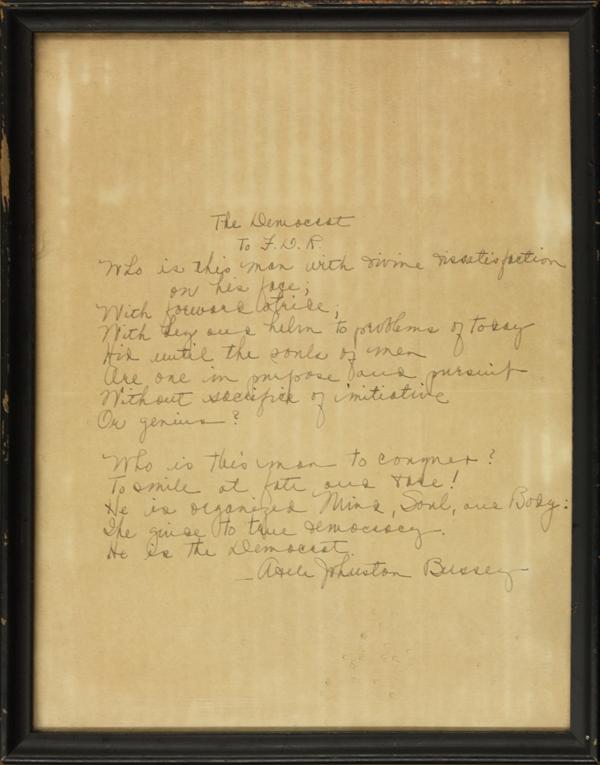 The Democrat
To F.D.R.
Who is this man with divine dissatisfaction
on his face;
With forward stride;
With key and helm to problems of today
Hid until the souls of men
Are one in purpose and pursuit
Without sacrifice of initiative
Or genius?
Who is this man to conquer?
To smile at fate and dare!
He is organized Mind, Soul, and Body:
The guide to true democracy.
He is the Democrat.
- Adele Johnston Bussey